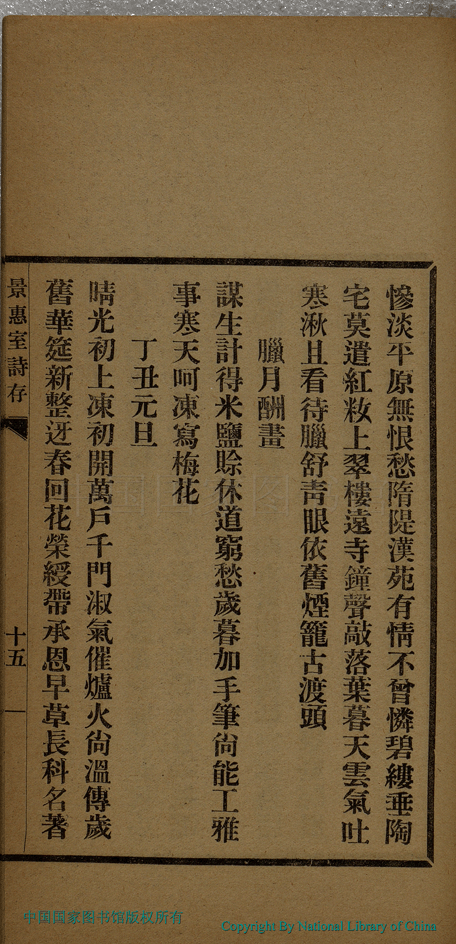 慘淡平原無恨愁隋隄漢苑有情不曾憐碧縷垂陶
宅莫遣紅籹上翠樓遠寺鐘聲敲落葉暮天雲氣吐
寒湫且看待臘舒青眼依舊煙籠古渡頭
臘月酬畫
謀生計得米鹽賒休道窮愁歲暮加手筆尙能工雅
事寒天呵凍寫梅花
丁丑元旦
晴光初上凍初開萬戶千門淑氣催爐火尙溫傳歲
舊華筵新整迓春回花榮綬帶承恩早草長科名著
景惠室詩存
十五
中国国家图书馆版权所有
Copyright By National Library of China